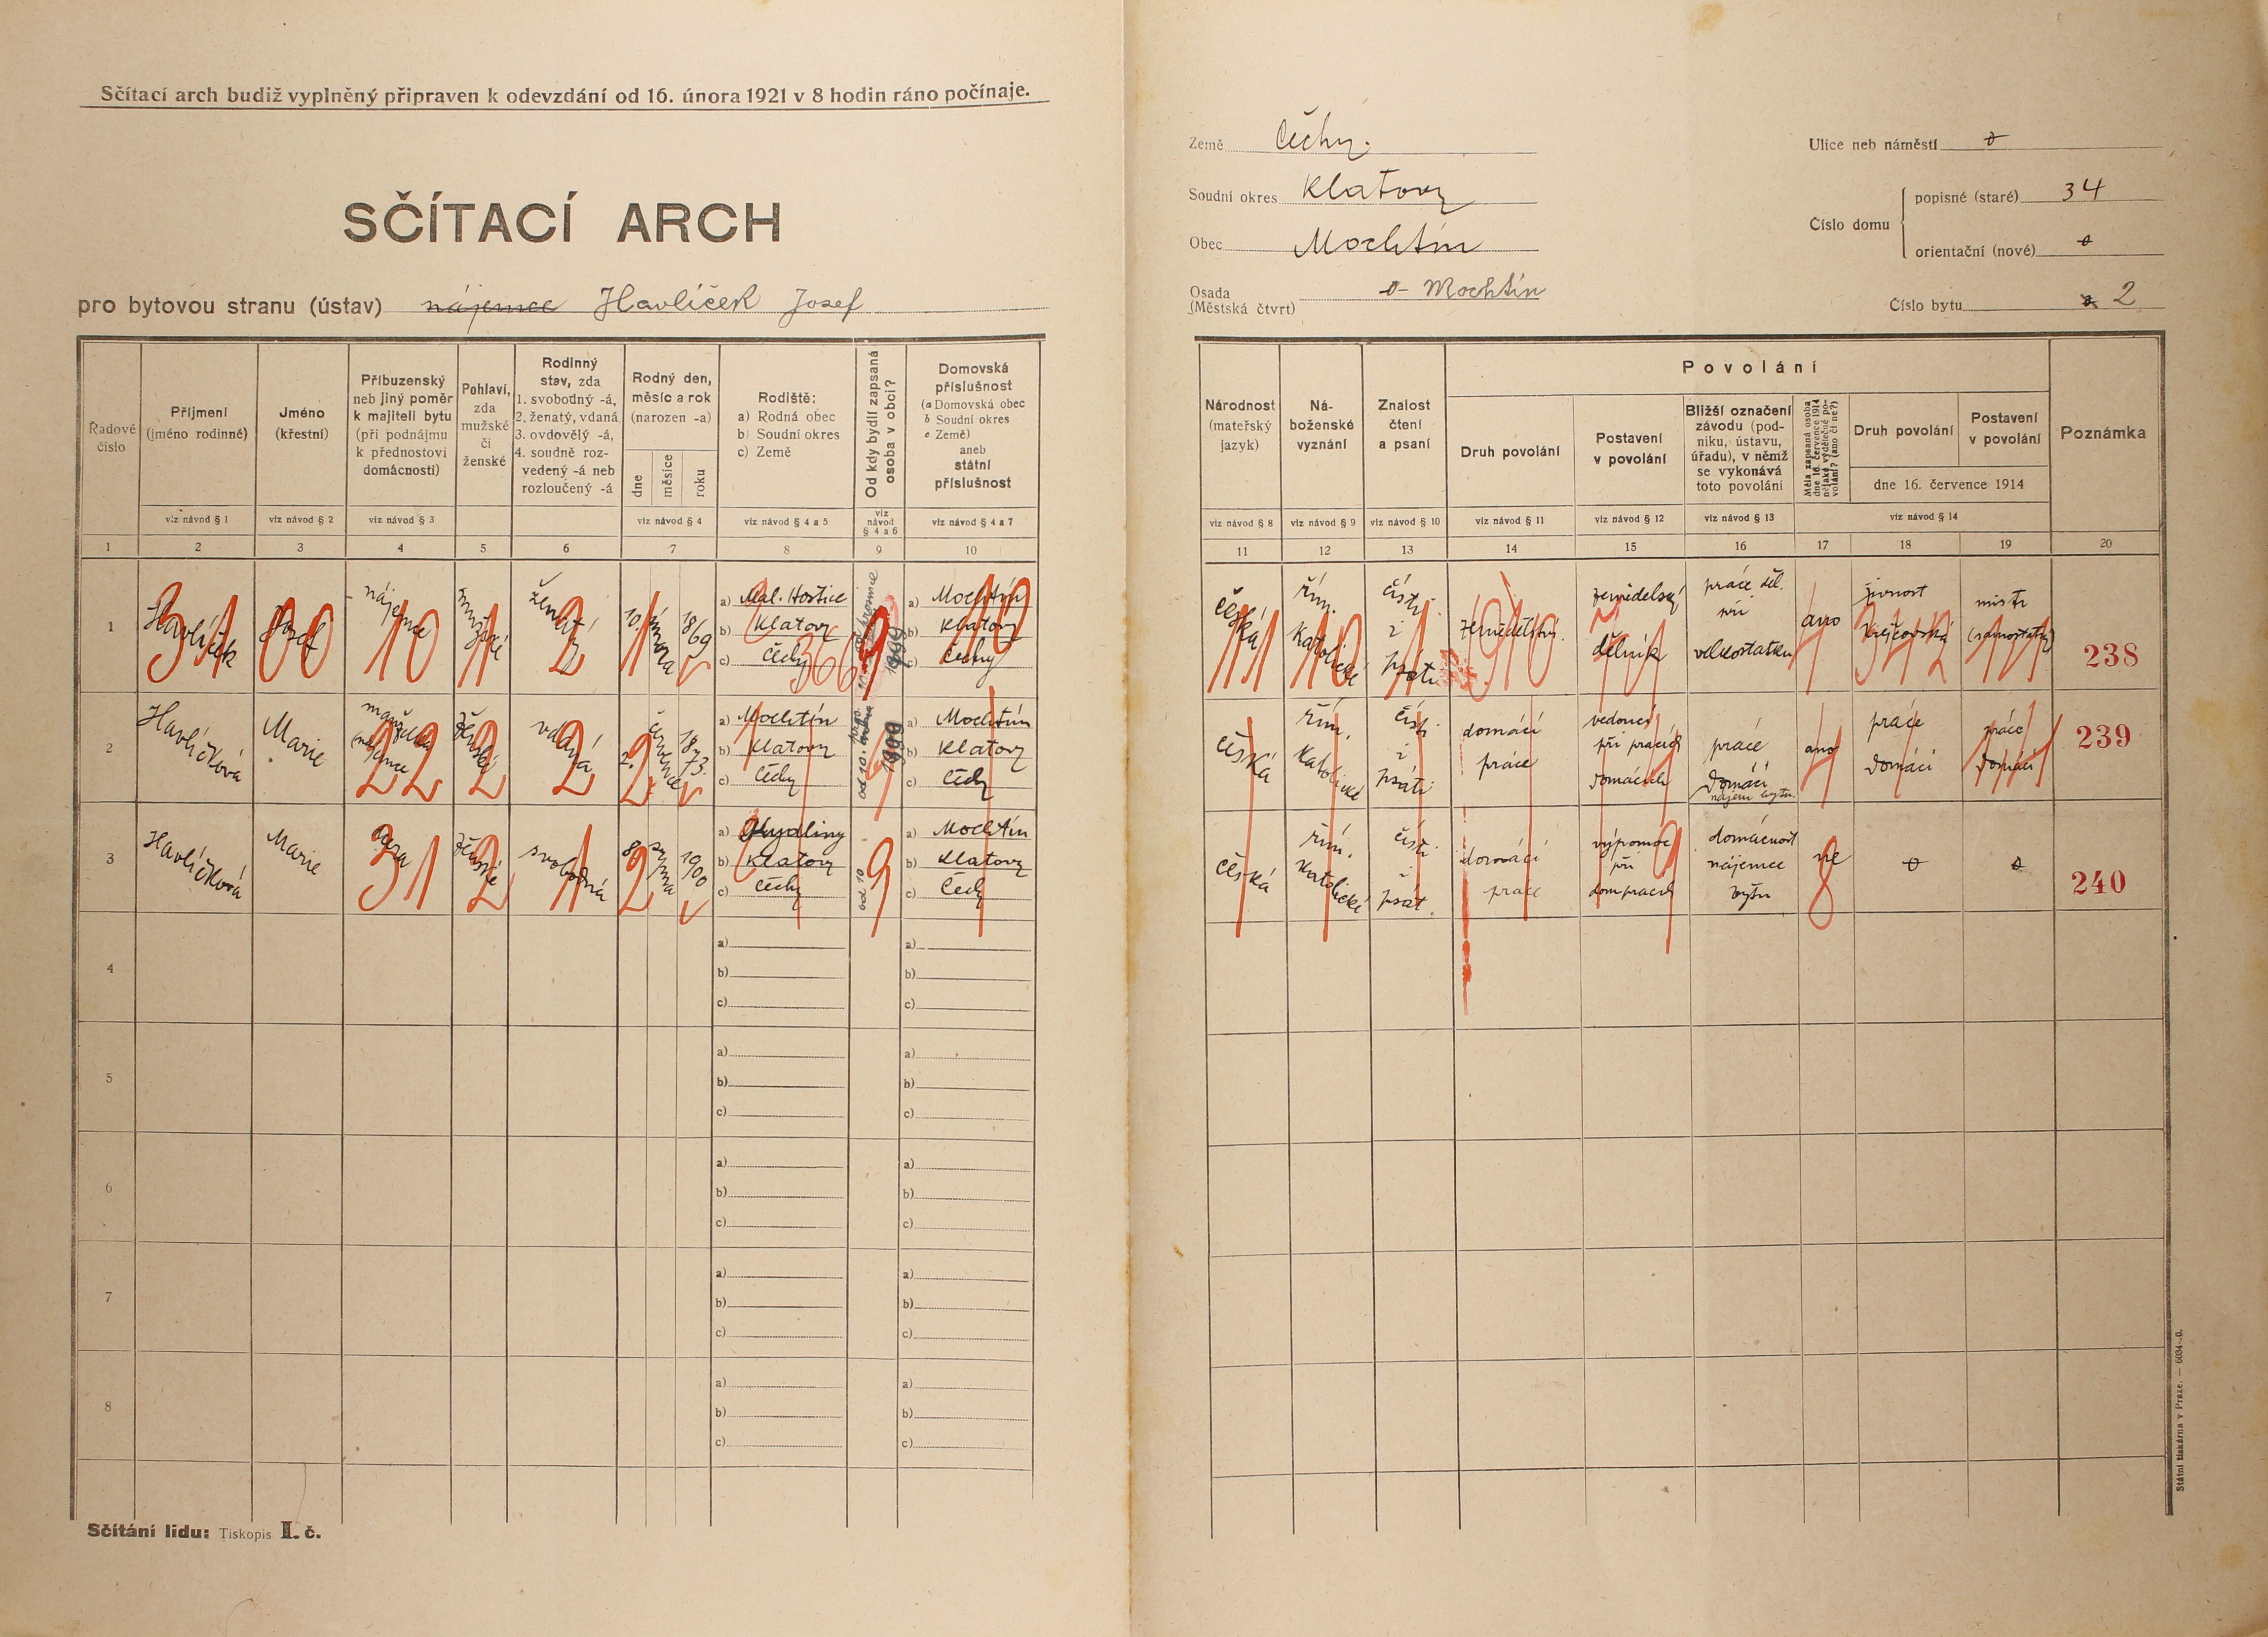 Sčítací arch budiž vyplněný připraven k odevzdání od 16. února 1921 v 8 hodin ráno počínaje.
SČÍTACÍ ARCH
pro bytovou stranu (ústav) nájemce Havlíček Josef
Země Čechy.
Soudní okres Klatovy
Obec Mochtín
Osada
(Městská čtvrt) Mochtín
Ulice neb náměstí
Číslo domu
popisné (staré) 34
orientační (nové)
Číslo bytu 2
Řadové
číslo
Příjmení
(jméno rodinné)
Jméno
(křestní)
Příbuzenský
neb jiný poměr
k majiteli bytu
(při podnájmu
k přednostovi
domácnosti)
Pohlaví,
zda
mužské
či
ženské
Rodinný
stav, zda
1. svobodný -á,
2. ženatý, vdaná
3. ovdovělý -á,
4. soudně roz-
vedený -á neb
rozloučený -á
Rodný den,
měsíc a rok
(narozen -a)
dne
měsíce
roku
Rodiště:
a) Rodná obec
b) Soudní okres
c) Země
Od kdy bydlí zapsaná
osoba v obci?
Domovská
příslušnost
(a Domovská obec
b Soudní okres
c Země)
aneb
státní
příslušnost
viz návod § 1
viz návod § 2
viz návod § 3
viz návod § 4
viz návod § 4 a 5
viz
návod
§ 4 a 6
viz návod § 4 a 7
1 2 3 4 5 6 7 8 9 10
Národnost
(mateřský
jazyk)
Ná-
boženské
vyznání
Znalost
čtení
a psaní
Povolání
Druh povolání
Postavení
v povolání
Bližší označení
závodu (pod-
niku, ústavu,
úřadu), v němž
se vykonává
toto povolání
Měla zapsaná osoba
dne 16. července 1914
nějaké výdělečné po-
volání? (ano či ne?)
Druh povolání
Postavení
v povolání
dne 16. července 1914
Poznámka
viz návod § 8
viz návod § 9
viz návod § 10
viz návod § 11
viz návod § 12
viz návod § 13
viz návod § 14
11 12 13 14 15 16 17 18 19 20
1
Havlíček
Josef
nájemce
mužské
ženatý
10. února 1869
a) Mal. Hostice
b) Klatovy
c) Čechy
a) Mochtín
b) Klatovy
c) Čechy
česká
řím.
katolické
čísti
i
psáti
zemědělství
zemědělský
dělník
práce děl.
při
velkostatku
ano
živnost
krejčovská
mistr
(samostatný)
238
2
Havlíčková
Marie
manželka
nájemce
ženské
vdaná
2. července 1873.
a) Mochtín
b) Klatovy
c) Čechy
a) Mochtín
b) Klatovy
c) Čechy
česká
řím.
katolické
čísti
i
psáti
domácí
práce
vedoucí
při pracích
domácích
práce
domácí
nájem. bytu.
ano
práce
domácí
práce
domácí
239
3
Havlíčková
Marie
dcera
ženské
svobodná
8. srpna 1900
a) Hydliny
b) Klatovy
c) Čechy
od 10
a) Mochtín
b) Klatovy
c) Čechy
česká
řím.
katolické
čísti
psát
domácí
práce
výpomoc
při
dom pracích
domácnost
nájemce
bytu
ne
240
4
a)
b)
c)
a)
b)
c)
5
a)
b)
c)
a)
b)
c)
6
a)
b)
c)
a)
b)
c)
7
a)
b)
c)
a)
b)
c)
8
a)
b)
c)
a)
b)
c)
Sčítání lidu: Tiskopis I. č.
Státní tiskárna v Praze. — 6034-.0.